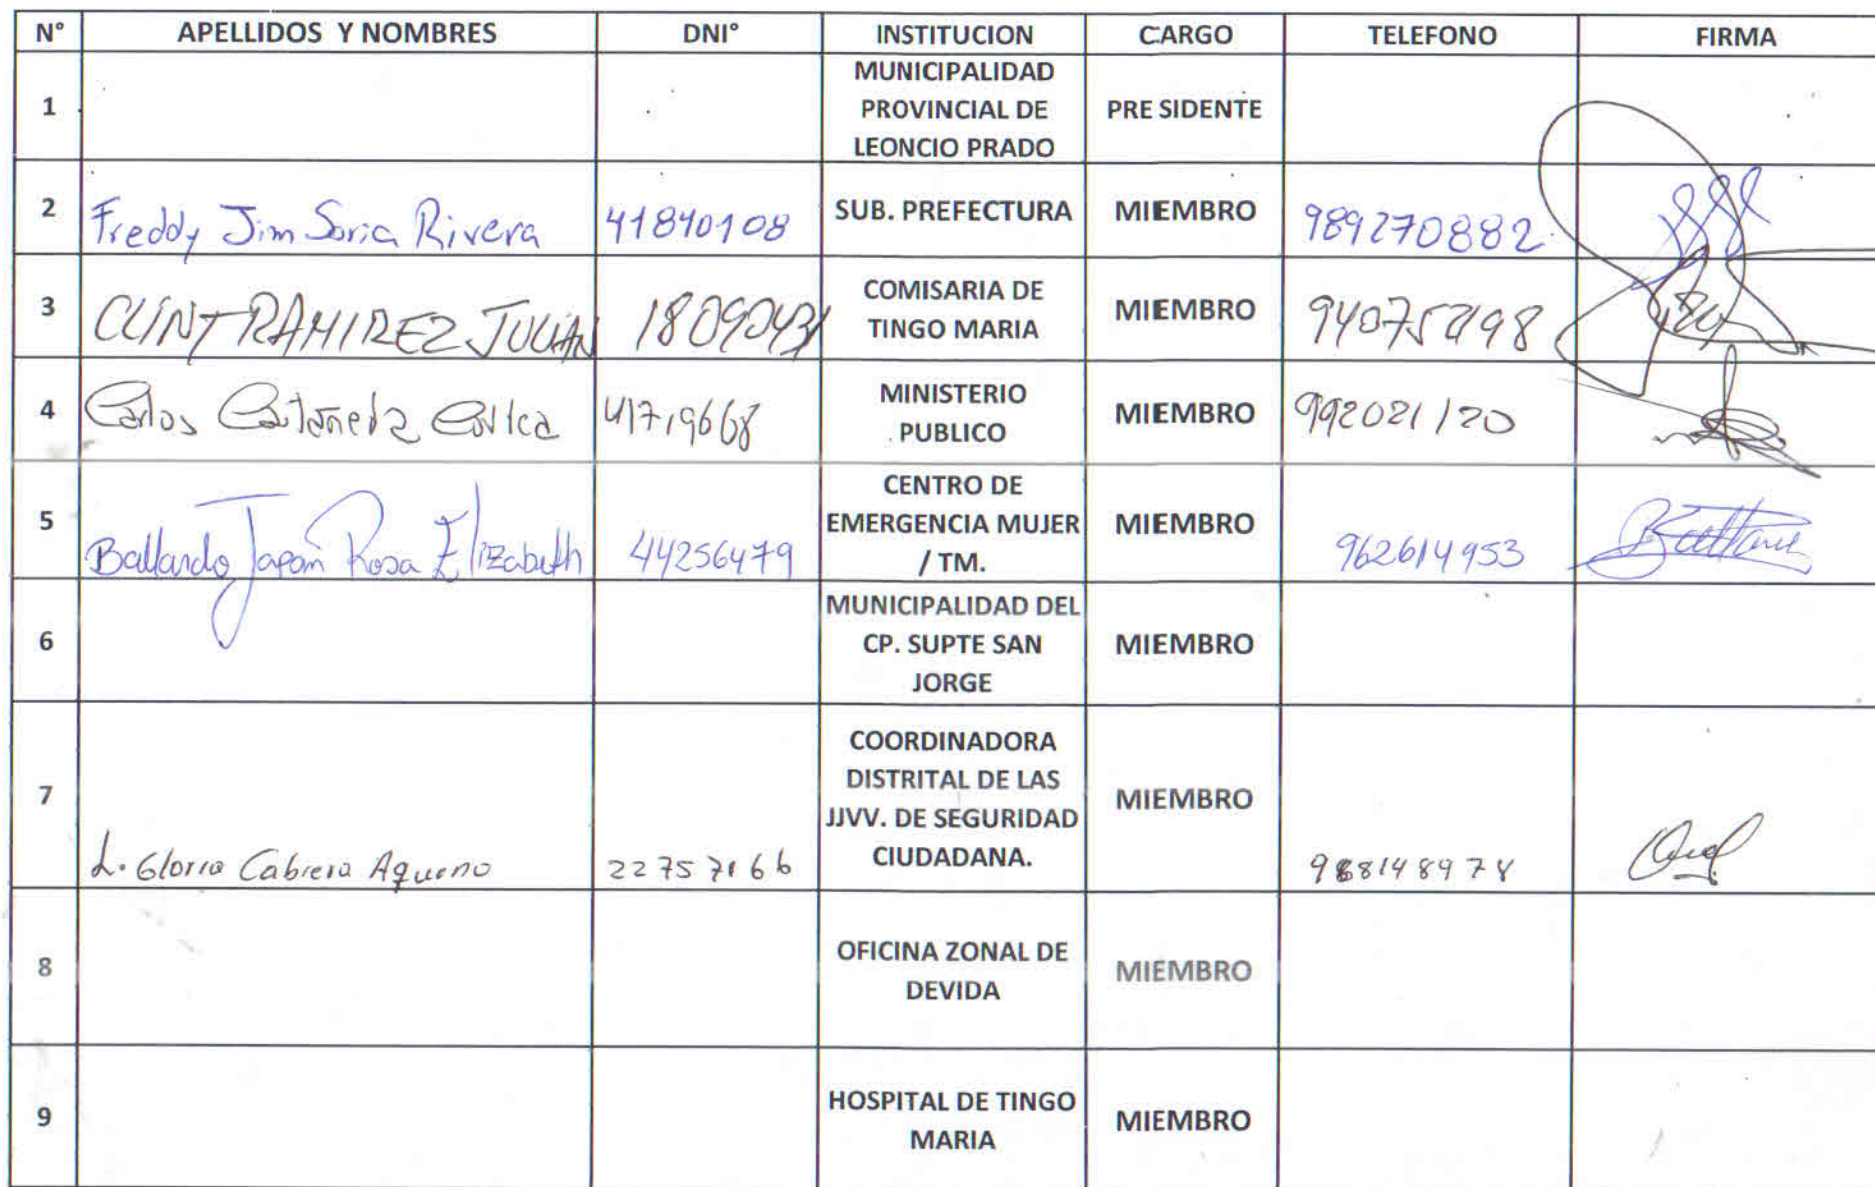 N° APELLIDOS Y NOMBRES DNI° INSTITUCION CARGO TELEFONO FIRMA
1 MUNICIPALIDAD PROVINCIAL DE LEONCIO PRADO PRESIDENTE
2 Freddy Jim Soria Rivera 41840108 SUB. PREFECTURA MIEMBRO 989270882
3 CLINT RAMIREZ JULIAN COMISARIA DE TINGO MARIA MIEMBRO
4 Carlos Castañeda MINISTERIO PUBLICO MIEMBRO 992021120
5 Ballardo Japan Rosa Elizabeth 44256479 CENTRO DE EMERGENCIA MUJER / TM. MIEMBRO 962614953
6 MUNICIPALIDAD DEL CP. SUPTE SAN JORGE MIEMBRO
7 L. Gloria Cabrera COORDINADORA DISTRITAL DE LAS JJVV. DE SEGURIDAD CIUDADANA. MIEMBRO
8 OFICINA ZONAL DE DEVIDA MIEMBRO
9 HOSPITAL DE TINGO MARIA MIEMBRO